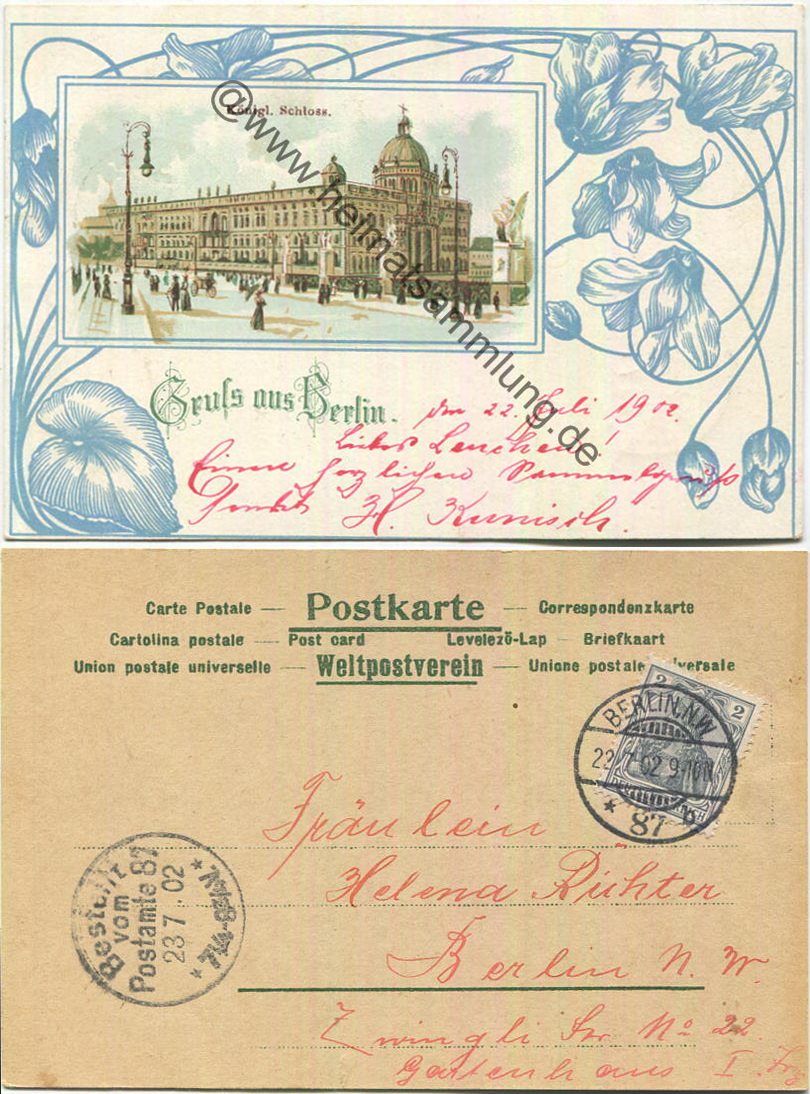 Königl. Schloss.
@www.heimatsammlung.de
Gruss aus Berlin.
den 22. Juli 1902.
Liebes Lenchen!
Einen herzlichen
Sendet H. Kunisch.
Carte Postale — Postkarte — Correspondenzkarte
Cartolina postale — Post card Levelező-Lap — Briefkaart
Union postale universelle — Weltpostverein — Unione postale universale
2 2
BERLIN.N.W.
22.7.02.9-10N.
* 87
Fräulein
Helena Richter
Berlin N. W.
Zwingli Str No 22
Gartenhaus I
Bestellt
vom
Postamte 87
23 7.02